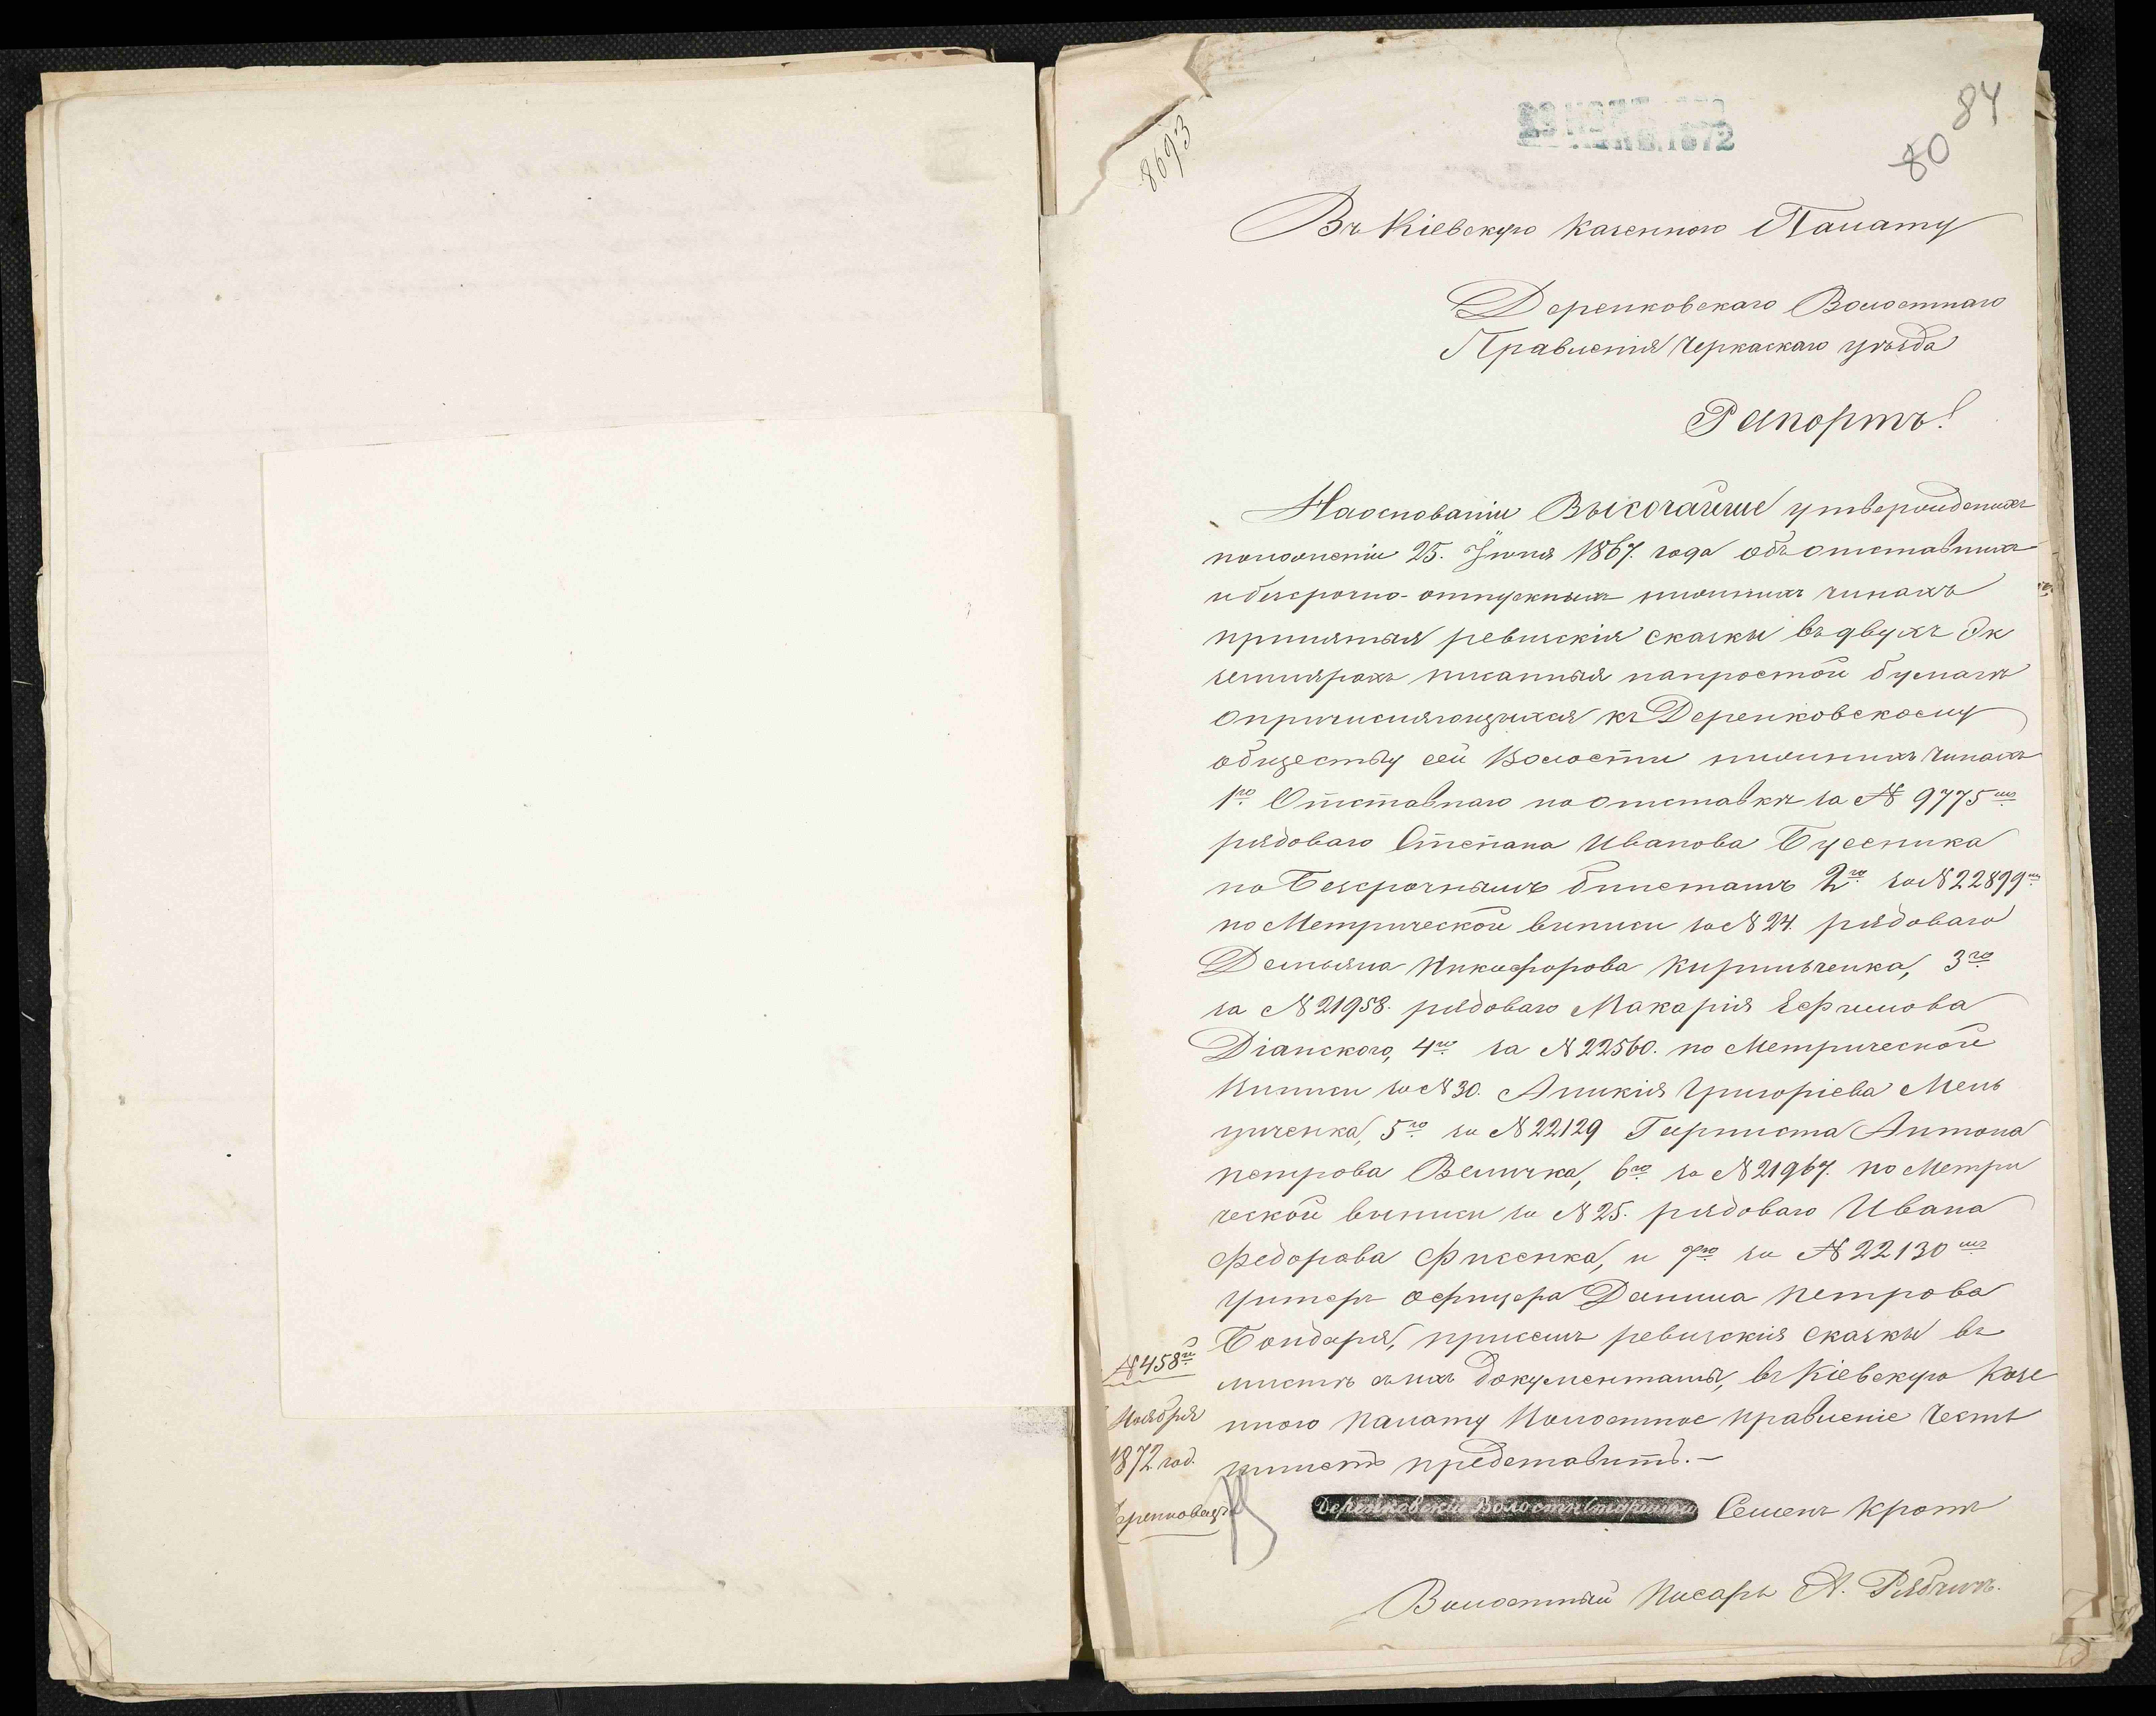 84
80
8693
Въ Кіевскую Казенною Палату
Деренковскаго Волостнаго
Правленія Черкаскаго уѣзда
Рапортъ!
Наоснованіи Высочайше утвержденихъ
положеніи 25. Іюня 1867. года объ отставнихъ
и безсрочно-отпускныхъ нижнихъ чинахъ
принятыя ревизскія сказки въ двухъ Эк
земплярахъ писанныя напростой бумагѣ
о причисляющихся къ Деренковскому
обществу сей Волости нижнихъ чинахъ
1го Отставнаго по отставкѣ за № 9775мъ
рядоваго Степана Иванова Бусеника
по Безсрочнымъ билетамъ 2го за № 22899мъ
по Метрической виписи за № 24. рядоваго
Демьяна Никифорова Кирильченка, 3го
за № 21958. рядоваго Макарія Ефимова
Діанского, 4го за № 22560. по Метрической
виписи за № 30. Аникія Григоріева Мель
ниченка, 5го за № 22129 Горниста Антона
петрова Величка, 6го за № 21967. по Метри
ческой виписи за № 25. рядоваго Ивана
Федорова Фисенка, и 7го за № 22130мъ
Унтеръ офицера Данила петрова
Бондаря, присемъ ревизскія сказки въ
мистѣ зъ ихъ документамы, въ Кіевскую Казе
нною палату Волостное правленіе Честь
имиетъ представить.—
№ 458й
Ноября
1872 год.
Деренковецъ
Деренковскій Волостн Старшина Семенъ Кротъ
Волостный писарь А. Рябчичъ.